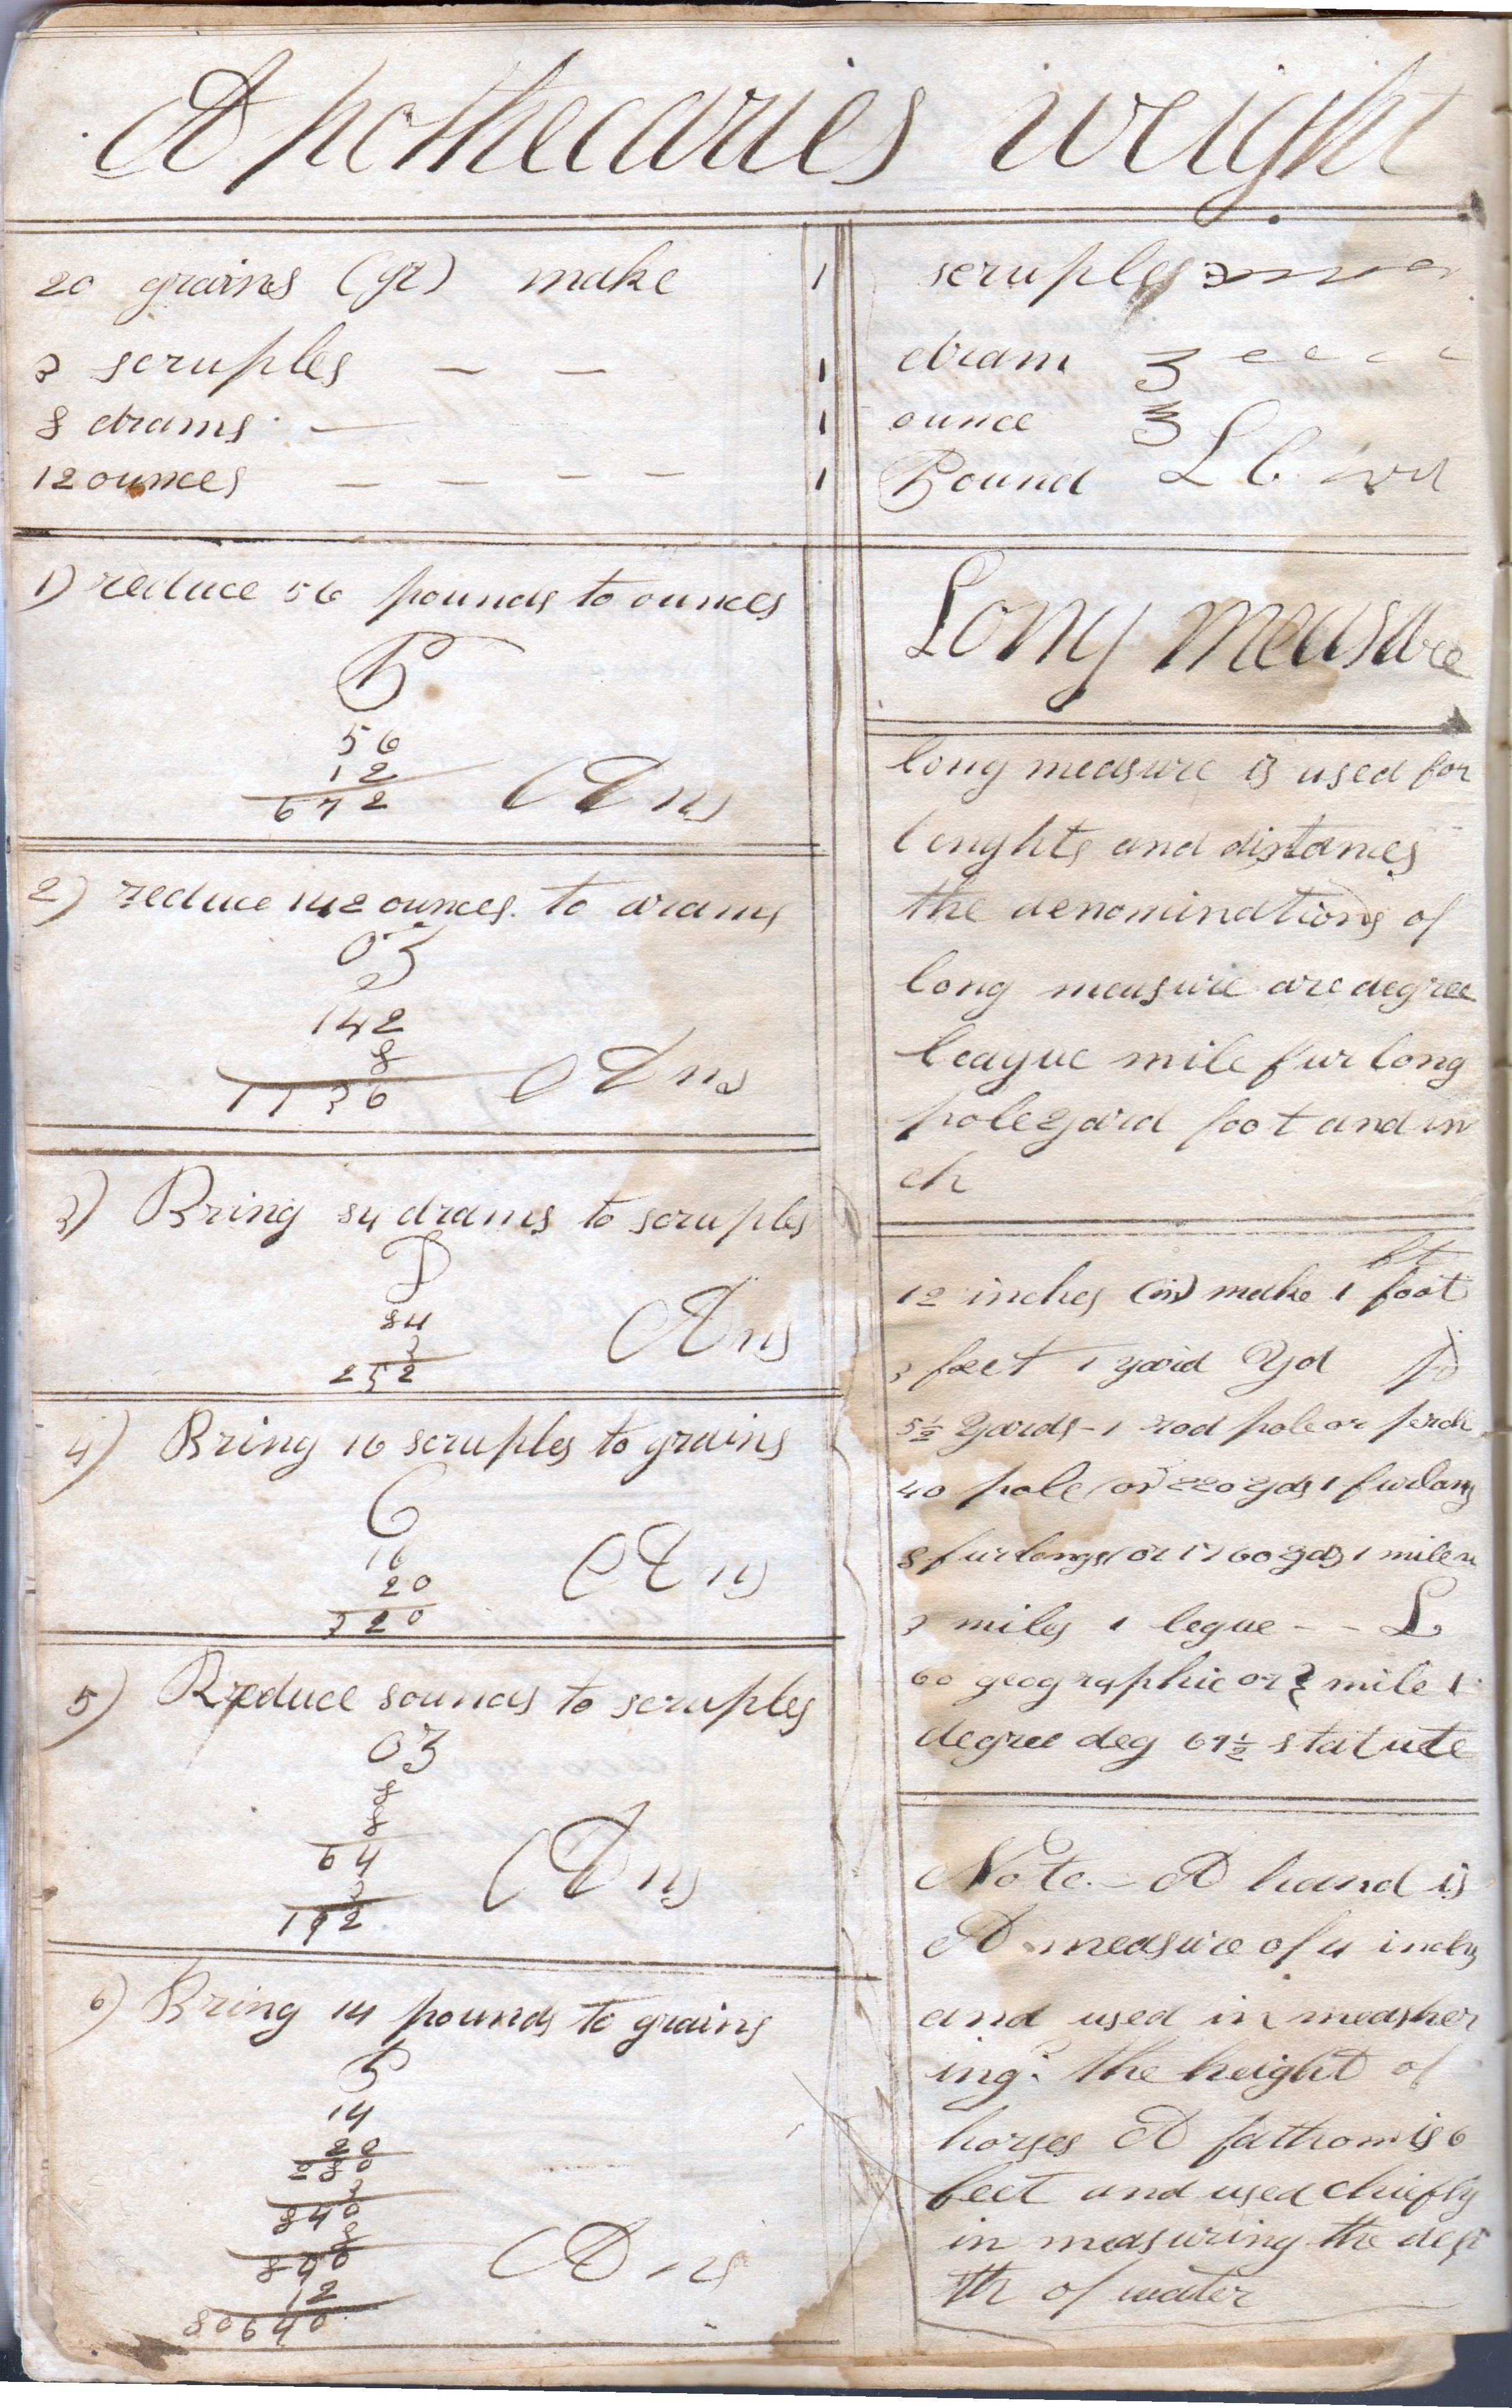 Apothecaries weight
20 grains (gr) make 1 scruples ℈
3 scruples — — 1 dram ʒ
8 drams — 1 ounce ℥
12 ounces — — — — 1 Pound Lb
1) reduce 56 pounds to ounces
56
12
672 Ans
2) reduce 142 ounces to drams
oz
142
8
1136 Ans
3) Bring 84 drams to scruples
D
84
3
252 Ans
4) Bring 16 scruples to grains
16
20
320 Ans
5) Reduce 8 ounces to scruples
oz
8
8
64
3
192 Ans
6) Bring 14 pounds to grains
14
20
280
3
840
8
12
80640 Ans
Long measure
long measure is used for
lenghts and distances
the denominations of
long measure are degree
league mile furlong
pole yard foot and in
ch
ft
12 inches (in) make 1 foot
3 feet 1 yard Yd
5½ Yards - 1 rod pole or perch
40 pole (or 220 yds 1 furlong
8 furlongs (or 1760 yds 1 mile
3 miles 1 legue - - L
60 geographic or } mile 1
degree deg 69½ statute
Note. - A hand is
A measure of 4 inches
and used in measher
ing the height of
horses A fathom is 6
feet and used chiefly
in measuring the dep
th of water